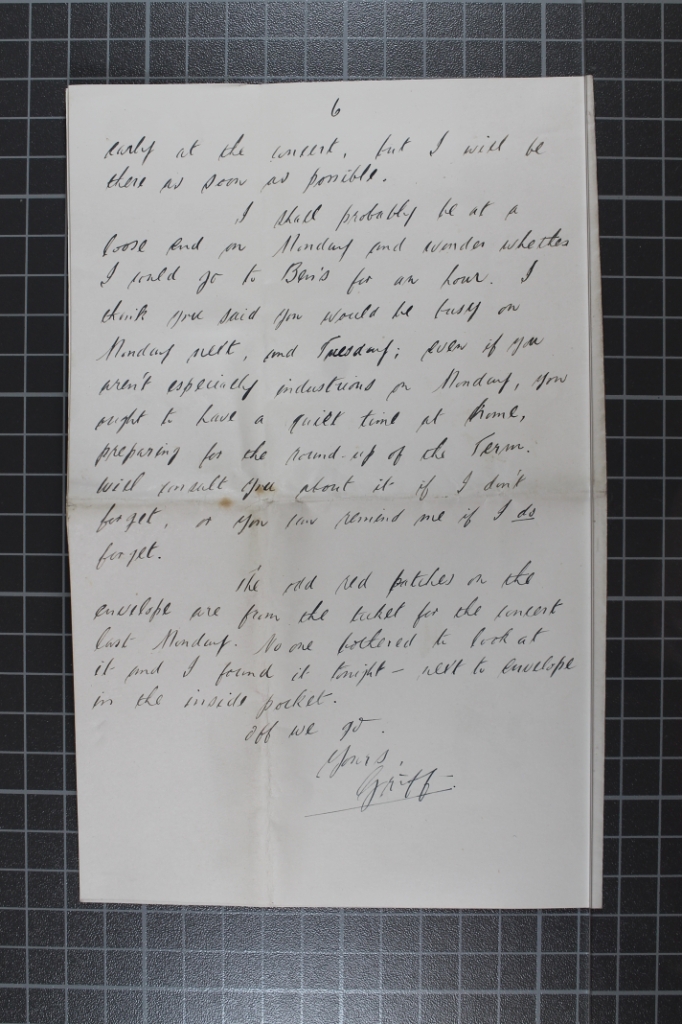 6
early at the concert, but I will be
there as soon as possible.
I shall probably be at a
loose end on Monday and wonder whether
I could go to Ben's for an hour. I
think you said you would be busy on
Monday next, and Tuesday; even if you
aren't especially industrious on Monday, you
ought to have a quiet time at home,
preparing for the round-up of the Term.
Will consult you about it if I don't
forget, or you can remind me if I do
forget.
The odd red patches on the
envelope are from the ticket for the concert
last Monday. No one bothered to look at
it and I found it tonight - next to envelope
in the inside pocket.
Off we go.
Yours,
Griff.